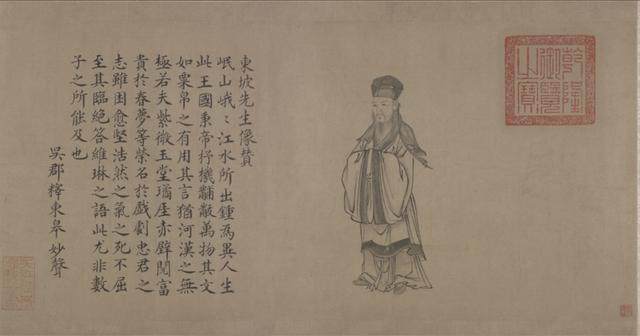 乾隆御覽之寶
東坡先生像贊
岷山峨〻江水所出鍾為異人生
此王國秉帝杼機黼黻萬物其文
如粟帛之有用其言猶河漢之無
極若夫紫微玉堂瓊厓赤壁閱富
貴於春夢等榮名於戲劇忠君之
志雖困愈堅浩然之氣之死不屈
至其臨絕答維琳之語此尤非數
子之所能及也
吳郡釋東皋妙聲